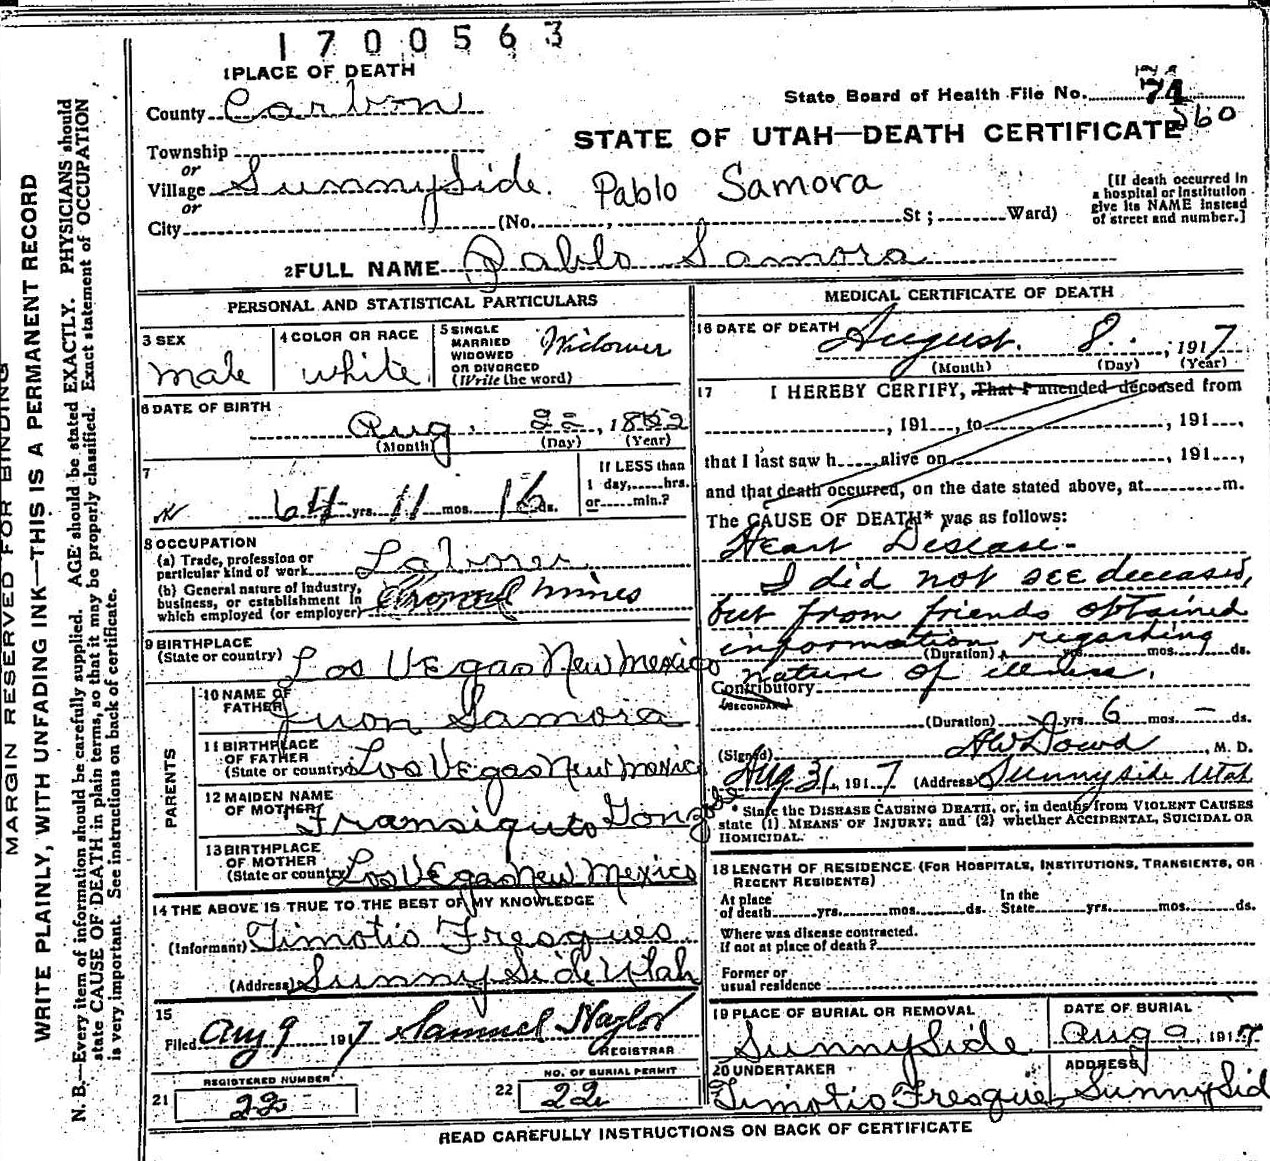 1700563
1 PLACE OF DEATH
County Carbon
State Board of Health File No. 74
560
STATE OF UTAH—DEATH CERTIFICATE
Township
or
Village Sunnyside. Pablo Samora
or
City (No. , St; Ward)
[If death occurred in
a hospital or institution
give its NAME instead
of street and number.]
2 FULL NAME Pablo Samora
PERSONAL AND STATISTICAL PARTICULARS
3 SEX
male
4 COLOR OR RACE
white
5 SINGLE
MARRIED
WIDOWED
OR DIVORCED
(Write the word)
Widower
6 DATE OF BIRTH
Aug. 22, 1852
(Month) (Day) (Year)
7
64 yrs. 11 mos. 16 ds.
If LESS than
1 day, hrs.
or min.?
8 OCCUPATION
(a) Trade, profession or
particular kind of work Laborer
(b) General nature of industry,
business, or establishment in
which employed (or employer) mines
9 BIRTHPLACE
(State or country) Los Vegas New Mexico
PARENTS
10 NAME OF
FATHER Juon Samora
11 BIRTHPLACE
OF FATHER
(State or country) Los Vegas New Mexico
12 MAIDEN NAME
OF MOTHER Fransiquto
13 BIRTHPLACE
OF MOTHER
(State or country) Los Vegas New Mexico
14 THE ABOVE IS TRUE TO THE BEST OF MY KNOWLEDGE
(Informant) Timotio Fresques
(Address) Sunny Side Utah
15
Filed Aug 9 1917 Samuel Naylor
REGISTRAR
21 REGISTERED NUMBER
22
22 NO. OF BURIAL PERMIT
22
MEDICAL CERTIFICATE OF DEATH
16 DATE OF DEATH
August. 8 , 1917
(Month) (Day) (Year)
17 I HEREBY CERTIFY, That I attended deceased from
, 191 , to , 191 ,
that I last saw h alive on , 191 ,
and that death occurred, on the date stated above, at m.
The CAUSE OF DEATH* was as follows:
Heart Disease-
I did not see deceased,
but from friends obtained
information regarding
(Duration) yrs. mos. ds.
nature of illness.
Contributory
(SECONDARY)
(Duration) yrs. 6 mos. - ds.
(Signed) A W Dowd , M. D.
Aug 31, 1917 (Address) Sunnyside Utah
* State the DISEASE CAUSING DEATH, or, in deaths from VIOLENT CAUSES
state (1) MEANS OF INJURY; and (2) whether ACCIDENTAL, SUICIDAL OR
HOMICIDAL.
18 LENGTH OF RESIDENCE (FOR HOSPITALS, INSTITUTIONS, TRANSIENTS, OR
RECENT RESIDENTS)
At place
of death yrs. mos. ds.
In the
State yrs. mos. ds.
Where was disease contracted.
If not at place of death?
Former or
usual residence
19 PLACE OF BURIAL OR REMOVAL
Sunny Side
DATE OF BURIAL
Aug 9, 1917
20 UNDERTAKER
Timotio Fresques
ADDRESS
Sunny Sid
READ CAREFULLY INSTRUCTIONS ON BACK OF CERTIFICATE
MARGIN RESERVED FOR BINDING
WRITE PLAINLY, WITH UNFADING INK—THIS IS A PERMANENT RECORD
N. B.—Every item of information should be carefully supplied. AGE should be stated EXACTLY. PHYSICIANS should
state CAUSE OF DEATH in plain terms, so that it may be properly classified. Exact statement of OCCUPATION
is very important. See instructions on back of certificate.